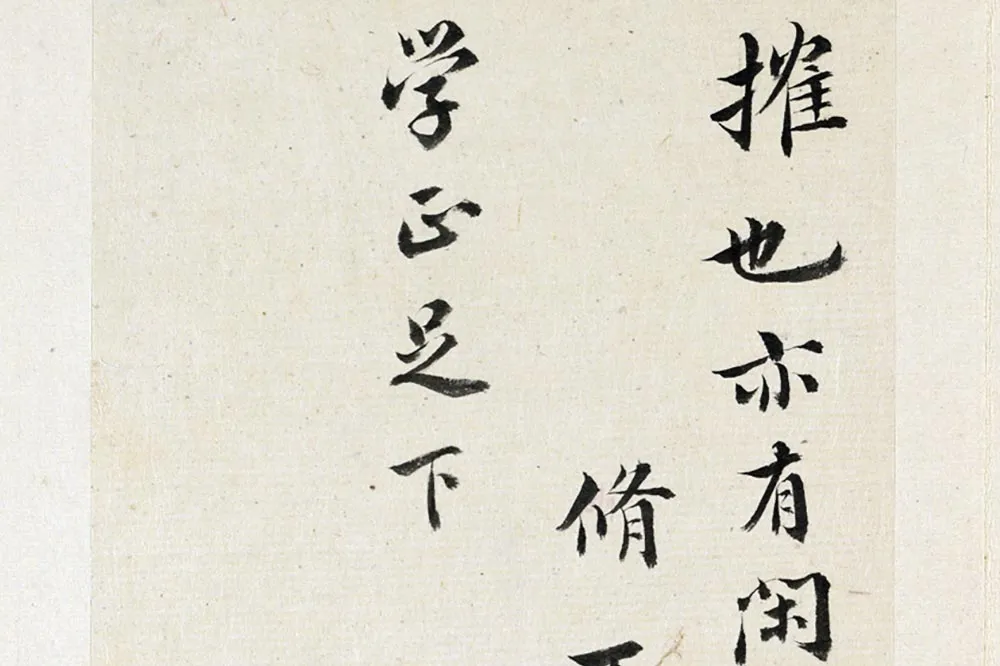 搉也亦有閑
脩
学正足下